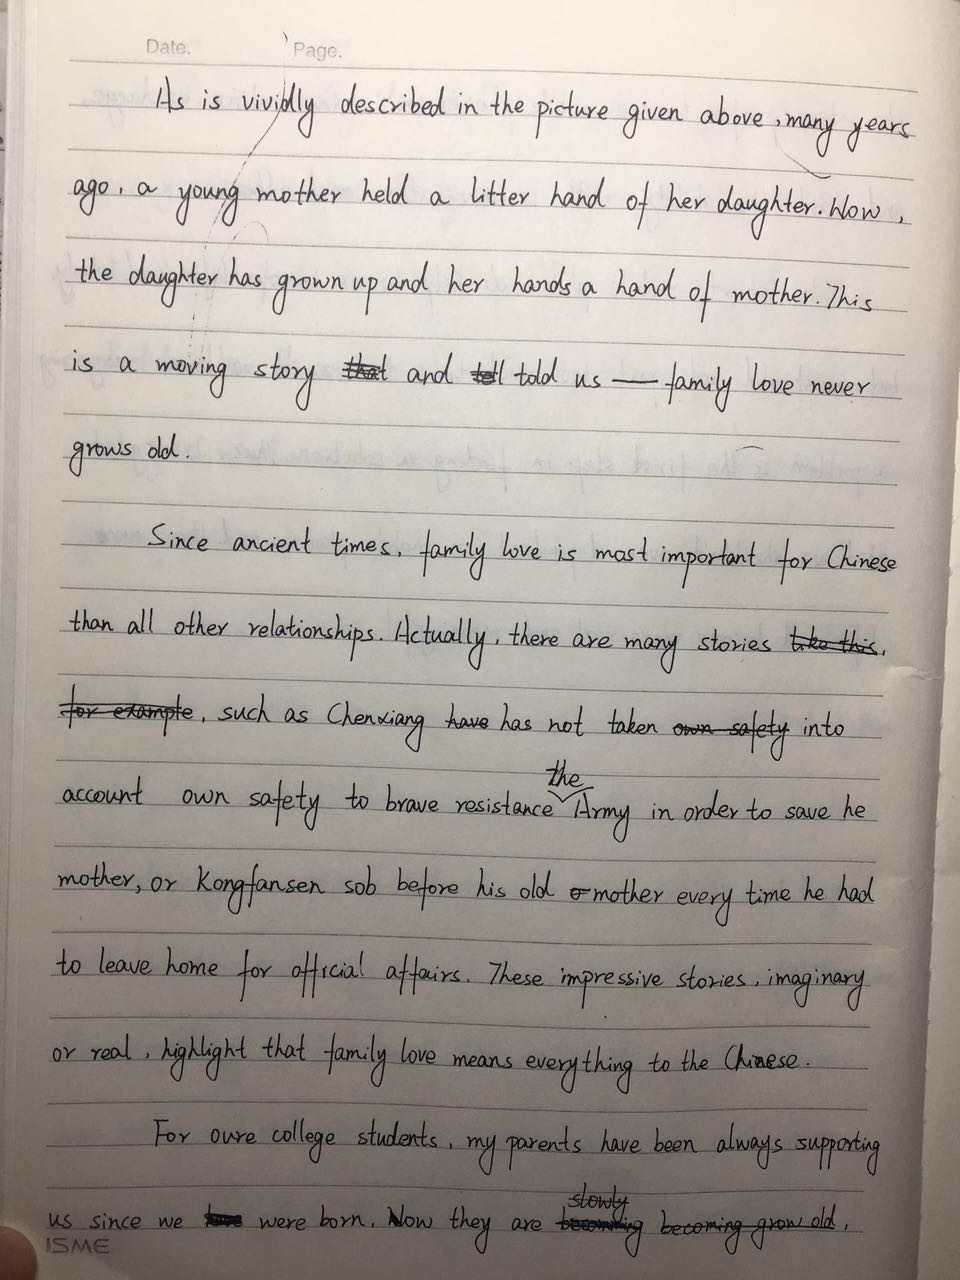 Date. Page.
As is vividly described in the picture given above, many years
ago, a young mother held a litter hand of her daughter. Now,
the daughter has grown up and her hands a hand of mother. This
is a moving story that and tell told us — family love never
grows old.
Since ancient times, family love is most important for Chinese
than all other relationships. Actually, there are many stories like this,
for example, such as Chenxiang have has not taken own safety into
the
account own safety to brave resistance Army in order to save he
mother, or Kongfansen sob before his old mother every time he had
to leave home for official affairs. These impressive stories, imaginary
or real, highlight that family love means everything to the Chinese.
For oure college students, my parents have been always supporting
slowly
us since we have were born. Now they are becoming becoming grow old,
ISME